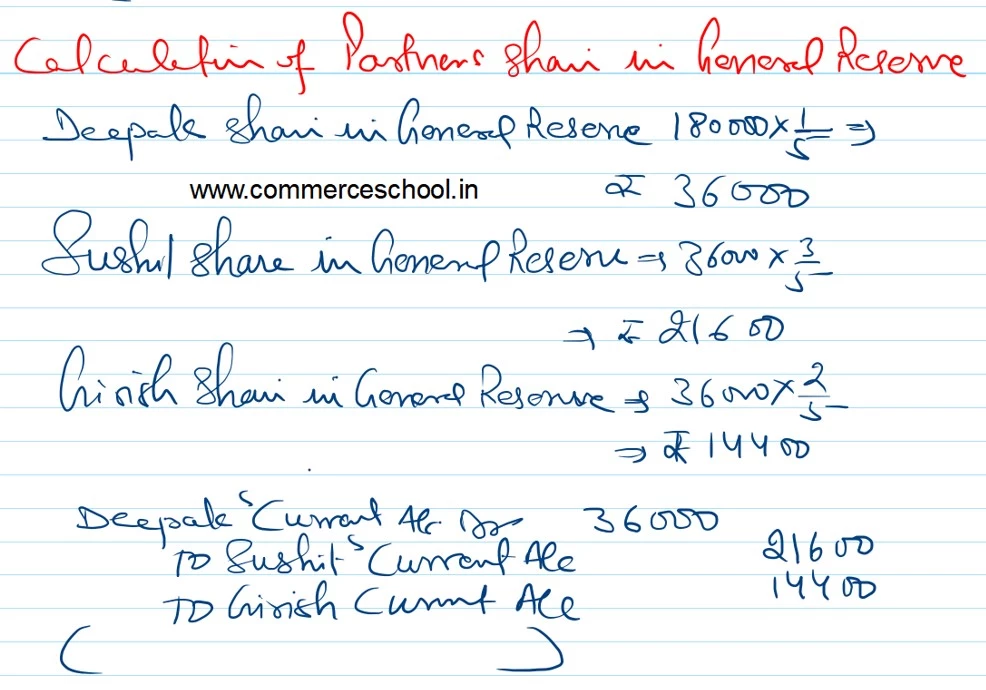 Calculation of Partners Share in General Reserve
Deepak share in General Reserve 180000 × 1/5 ⇒
www.commerceschool.in ₹ 36000
Sushil share in General Reserve ⇒ 36000 × 3/5
⇒ ₹ 21600
Girish share in General Reserve ⇒ 36000 × 2/5
⇒ ₹ 14400
Deepak's Current A/c Dr 36000
To Sushil's Current A/c 21600
To Girish Current A/c 14400
( )